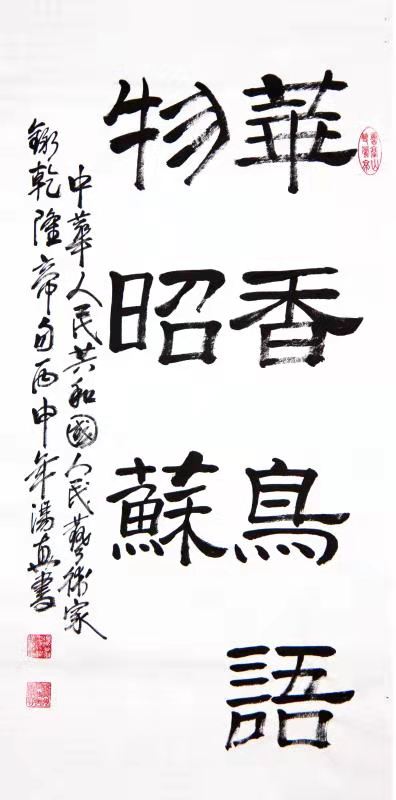 華香鳥語
物昭蘇
中華人民共和國人民藝術家
錄乾隆帝句丙申年湯真書